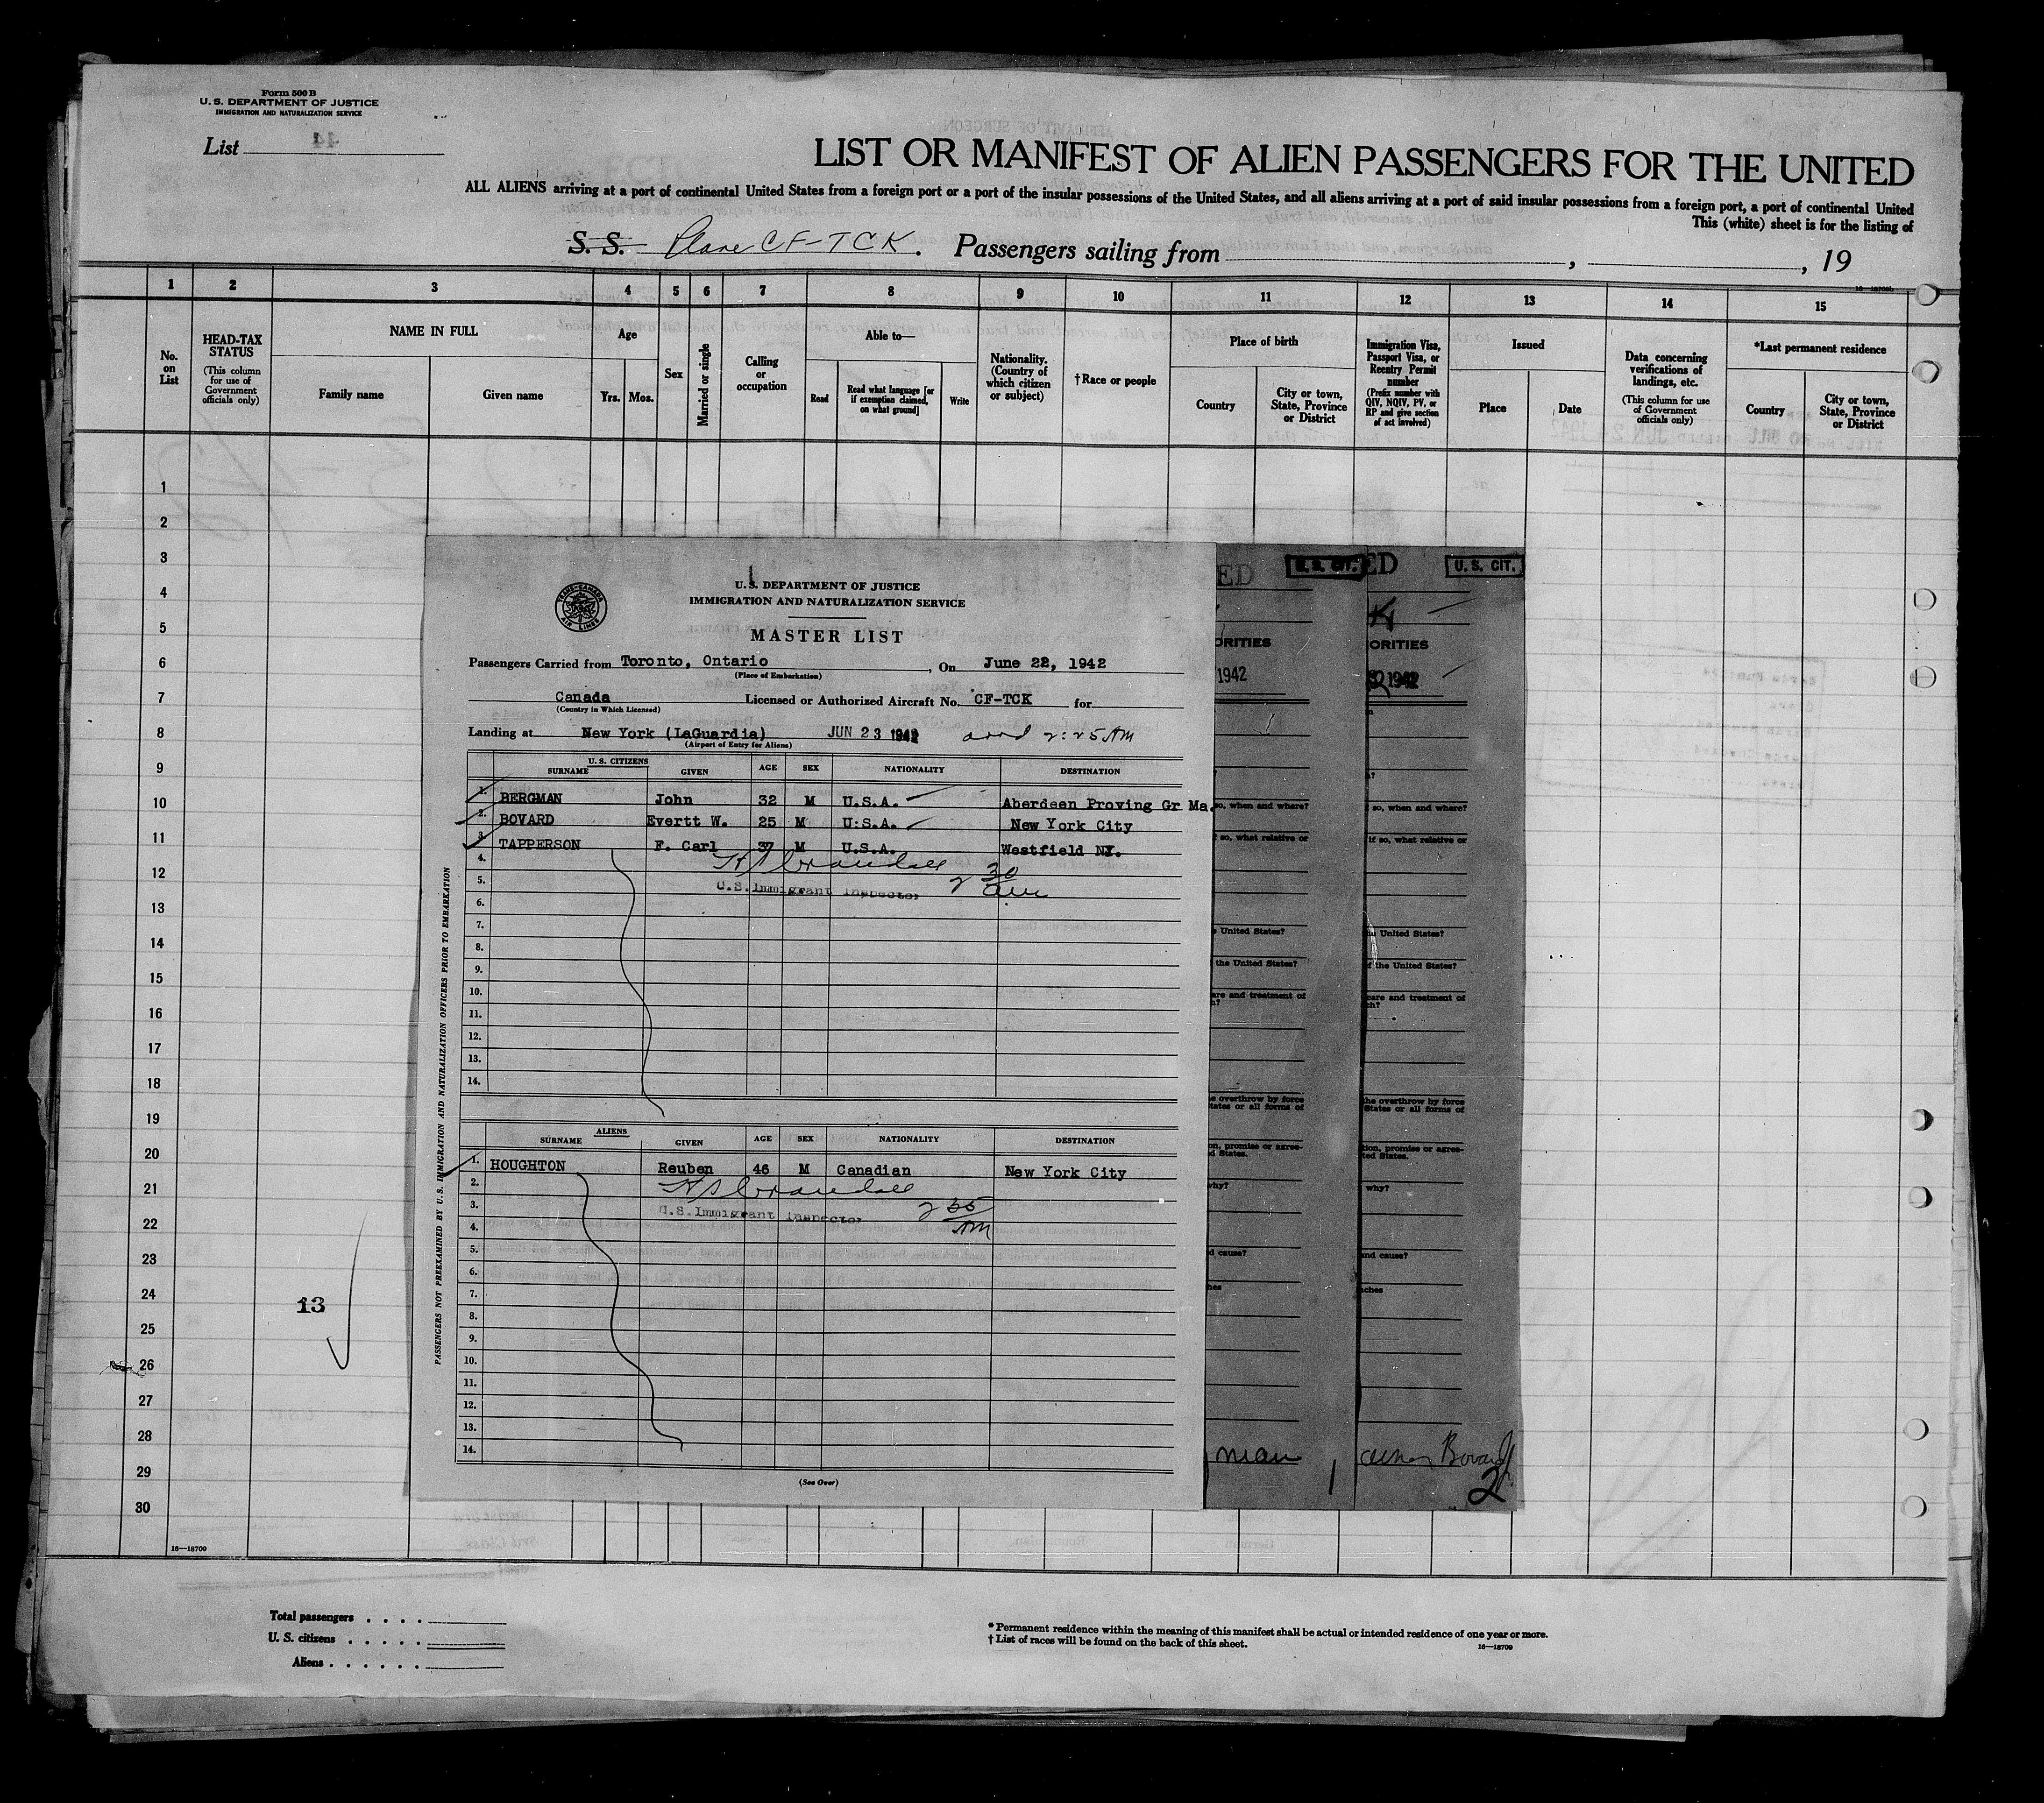 Form 500 B
U. S. DEPARTMENT OF JUSTICE
IMMIGRATION AND NATURALIZATION SERVICE
List 44
LIST OR MANIFEST OF ALIEN PASSENGERS FOR THE UNITED
ALL ALIENS arriving at a port of continental United States from a foreign port or a port of the insular possessions of the United States, and all aliens arriving at a port of said insular possessions from a foreign port, a port of continental United
This (white) sheet is for the listing of
S. S. Plane CF-TCK. Passengers sailing from , , 19
1 2 3 4 5 6 7 8 9 10 11 12 13 14 15
No. on List
HEAD-TAX STATUS (This column for use of Government officials only)
NAME IN FULL
Family name Given name
Age
Yrs. Mos.
Sex
Married or single
Calling or occupation
Able to—
Read
Read what language [or if exemption claimed, on what ground]
Write
Nationality. (Country of which citizen or subject)
†Race or people
Place of birth
Country
City or town, State, Province or District
Immigration Visa, Passport Visa, or Reentry Permit number (Prefix number with QIV, NQIV, PV, or RP and give section of act involved)
Issued
Place Date
Data concerning verifications of landings, etc. (This column for use of Government officials only)
*Last permanent residence
Country
City or town, State, Province or District
1
2
3
4
5
6
7
8
9
10
11
12
13
14
15
16
17
18
19
20
21
22
23
24
25
26
27
28
29
30
13
16—18709
U. S. DEPARTMENT OF JUSTICE
IMMIGRATION AND NATURALIZATION SERVICE
TRANS-CANADA AIR LINES
MASTER LIST
Passengers Carried from Toronto, Ontario , On June 22, 1942
(Place of Embarkation)
Canada Licensed or Authorized Aircraft No. CF-TCK for
(Country in Which Licensed)
Landing at New York (LaGuardia) JUN 23 1942 arrd 2:25 AM
(Airport of Entry for Aliens)
U. S. CITIZENS
SURNAME GIVEN AGE SEX NATIONALITY DESTINATION
1. BERGMAN John 32 M U.S.A. Aberdeen Proving Gr Ma.
2. BOVARD Evertt W. 25 M U.S.A. New York City
3. TAPPERSON F. Carl 37 M U.S.A. Westfield NJ.
4.
5. U.S. Immigrant Inspector 2 30 am
6.
7.
8.
9.
10.
11.
12.
13.
14.
ALIENS
SURNAME GIVEN AGE SEX NATIONALITY DESTINATION
1. HOUGHTON Reuben 46 M Canadian New York City
2.
3. U.S. Immigrant Inspector 2 35 AM
4.
5.
6.
7.
8.
9.
10.
11.
12.
13.
14.
(See Over)
PASSENGERS NOT PREEXAMINED BY U. S. IMMIGRATION AND NATURALIZATION OFFICERS PRIOR TO EMBARKATION
ED U. S. CIT.
ORITIES
1942
so, when and where?
if so, what relative or
United States?
the United States?
are and treatment of
h?
e overthrow by force
tates or all forms of
on, promise or agree-
d States.
why?
d cause?
hes
man 1
ED U. S. CIT.
ORITIES
1942
if so, when and where?
if so, what relative or
United States?
f the United States?
care and treatment of
ch?
he overthrow by force
States or all forms of
tion, promise or agree-
ted States.
why?
and cause?
nches
Bovard
2
Total passengers . . . .
U. S. citizens . . . . .
Aliens . . . . . .
* Permanent residence within the meaning of this manifest shall be actual or intended residence of one year or more.
† List of races will be found on the back of this sheet.
16—18709